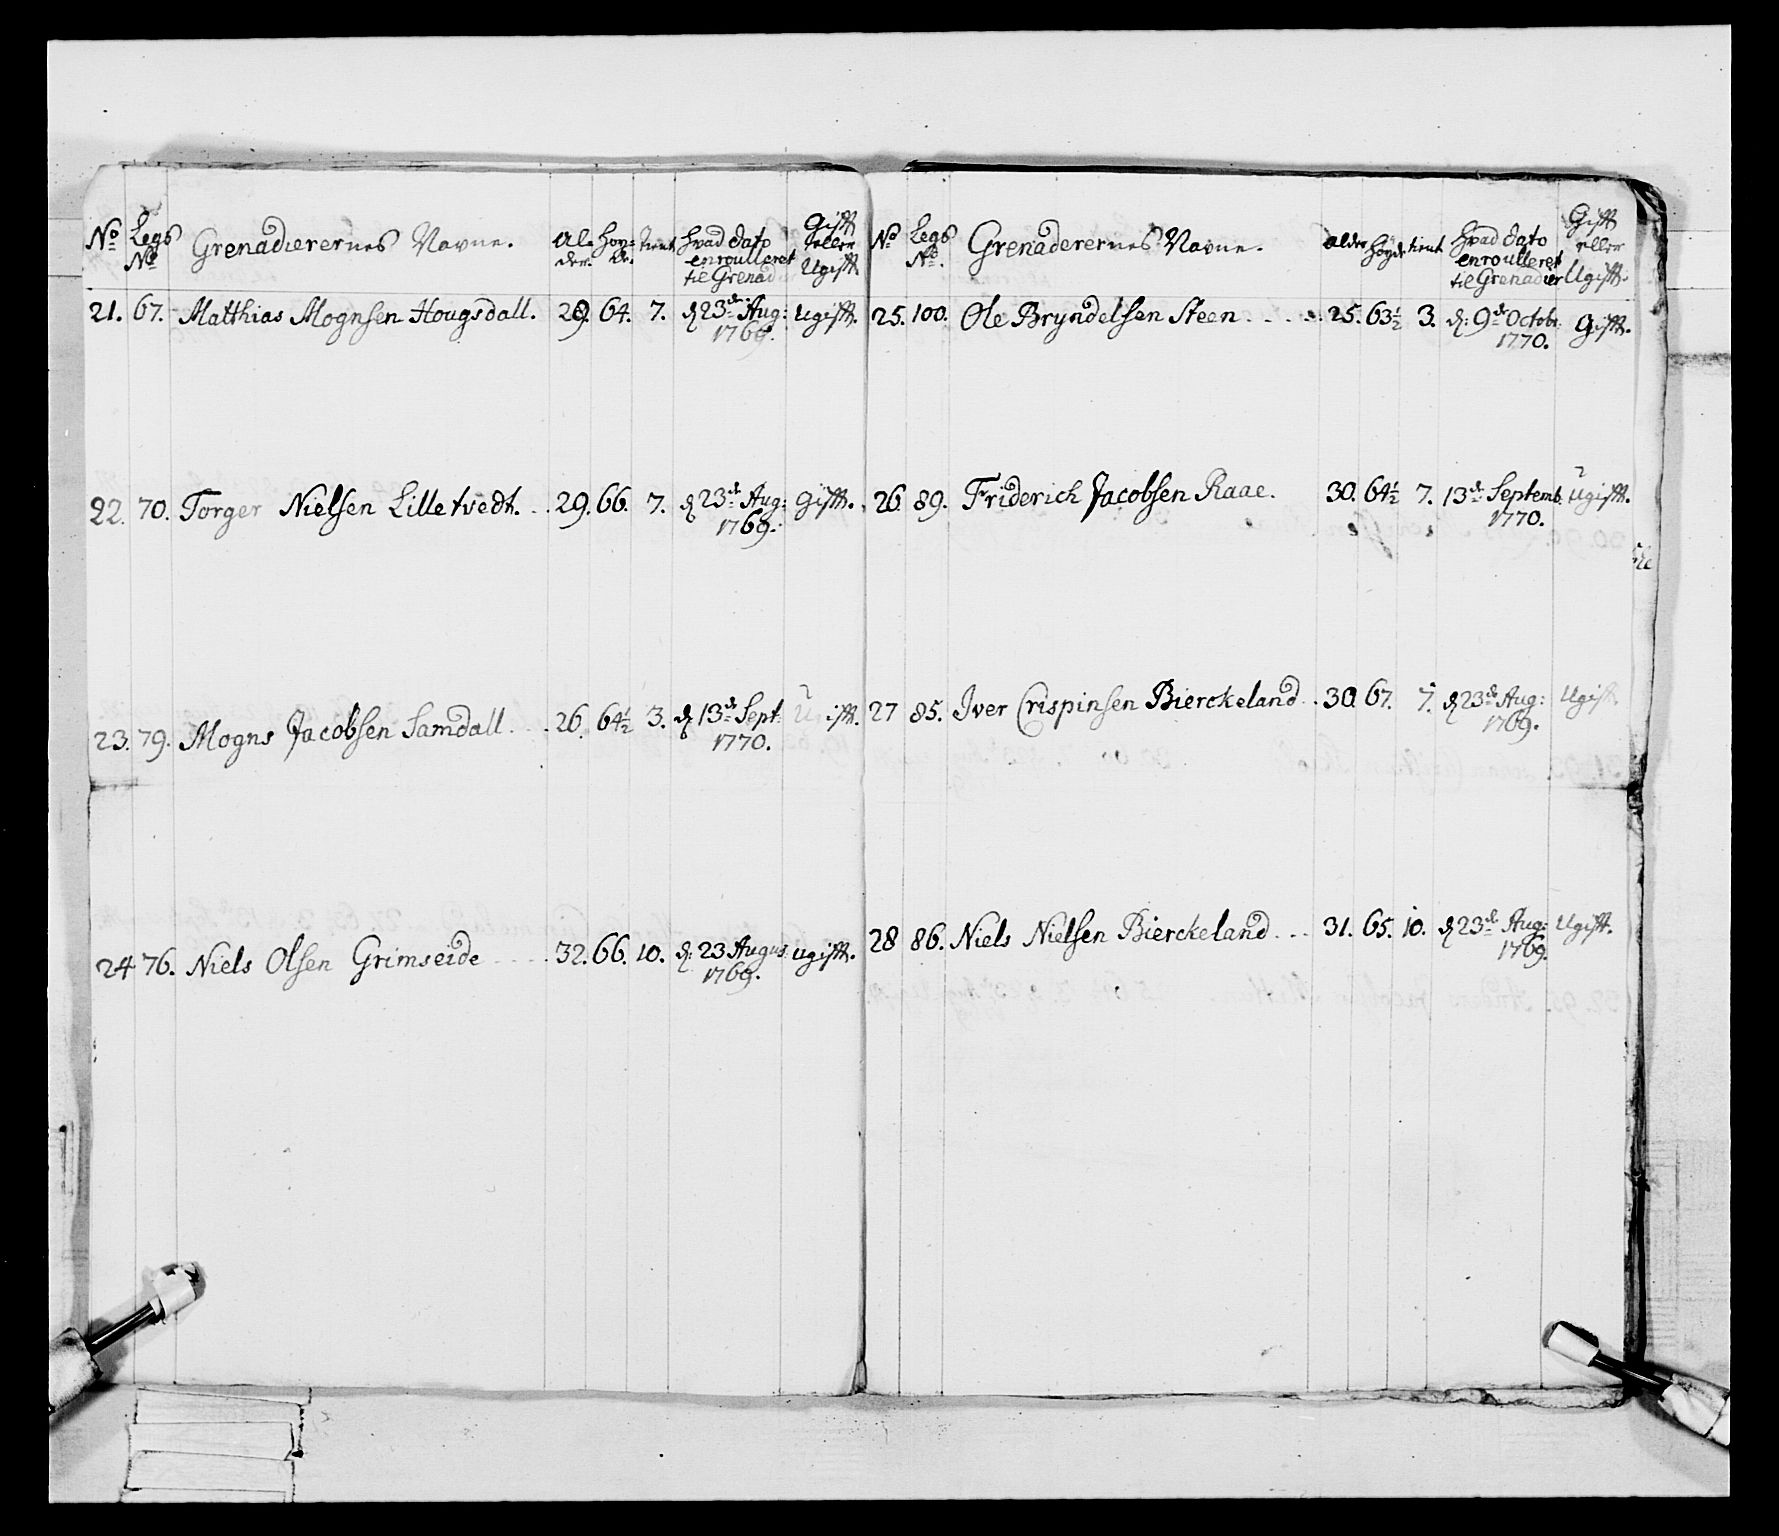 No Legs No Grenadierernes Navne. Al= der. Høy= de. tient hvad dato enroulleret til Grenad Gifft eller Ugifft
21. 67. Matthias Mognsen Hougsdall. 29. 64. 7. d 23de Aug: 1769. Ugifft.
22. 70. Torger Nielsen Lilletvedt. 29. 66. 7. d 23de Aug: 1769. Gifft.
23. 79. Mogns Jacobsen Samdall. 26. 64½ 3. d 13de Sept: 1770. Ugifft.
24 76. Niels Olsen Grimseide 32. 66. 10. d: 23 Augus: 1769. Ugifft.
No Legs No. Grenaderernes Navne. alder høyde tient hvad dato enroulleret til Grenadier Gifft eller Ugifft.
25. 100. Ole Bryndelsen Steen 25. 63½ 3. d: 9de Octobr: 1770. Gifft.
26. 89. Friderich Jacobsen Raae. 30. 64½ 7. 13de Septemb. 1770. Ugifft.
27 85. Iver Crispinsen Bierckeland 30. 67. 7. d 23de Aug: 1769. Ugift
28 86. Niels Nielsen Bierckeland 31. 65. 10. d 23de Aug: 1769. Ugifft.